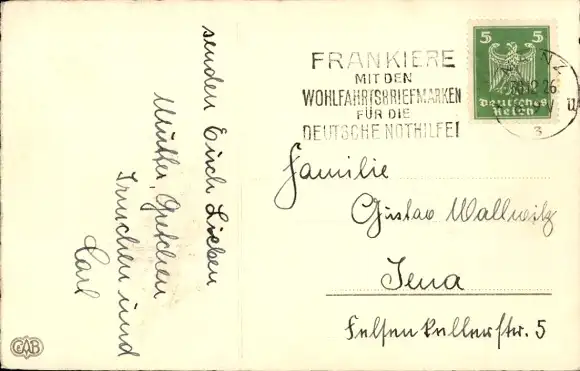 senden Euch Lieben
Mutter, Gretchen
Trudchen und
Carl
FRANKIERE
MIT DEN
WOHLFAHRTSBRIEFMARKEN
FÜR DIE
DEUTSCHE NOTHILFE!
5 5
Deutsches
Reich
26
V
3
Familie
Gustav Wallwitz
Jena
Felsenkellerstr. 5
CAB